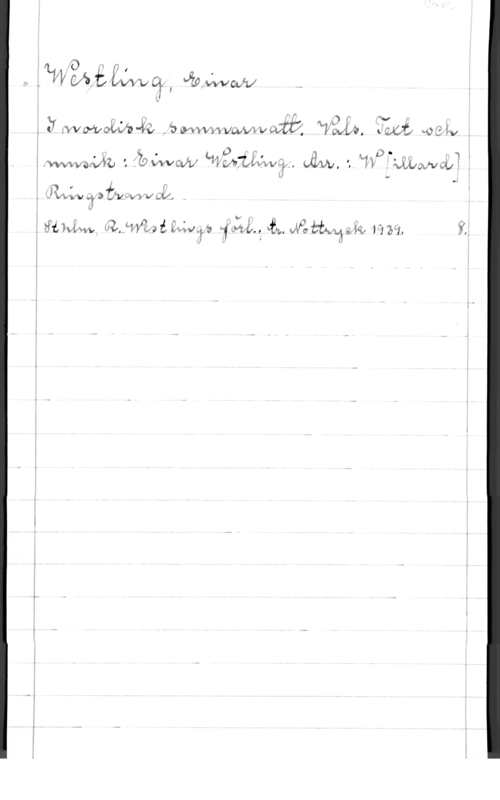 Westling, Einar
I nordisk sommarnatt. Vals. Text och
musik: Einar Westling. Arr.: W[illard]
Ringstrand.
Sthlm, R. Westlings förl.; tr. Nottryck 1939. 8.